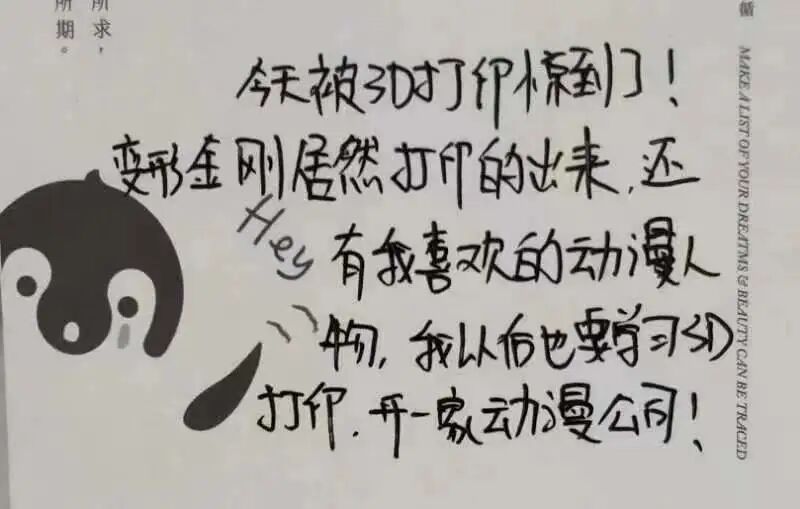 所求，
所期。
循
MAKE A LIST OF YOUR DREATMS & BEAUTY CAN BE TRACED
今天被3D打印惊到了！
变形金刚居然打印的出来，还
Hey
有我喜欢的动漫人
物，我以后也要学习3D
打印，开一家动漫公司！